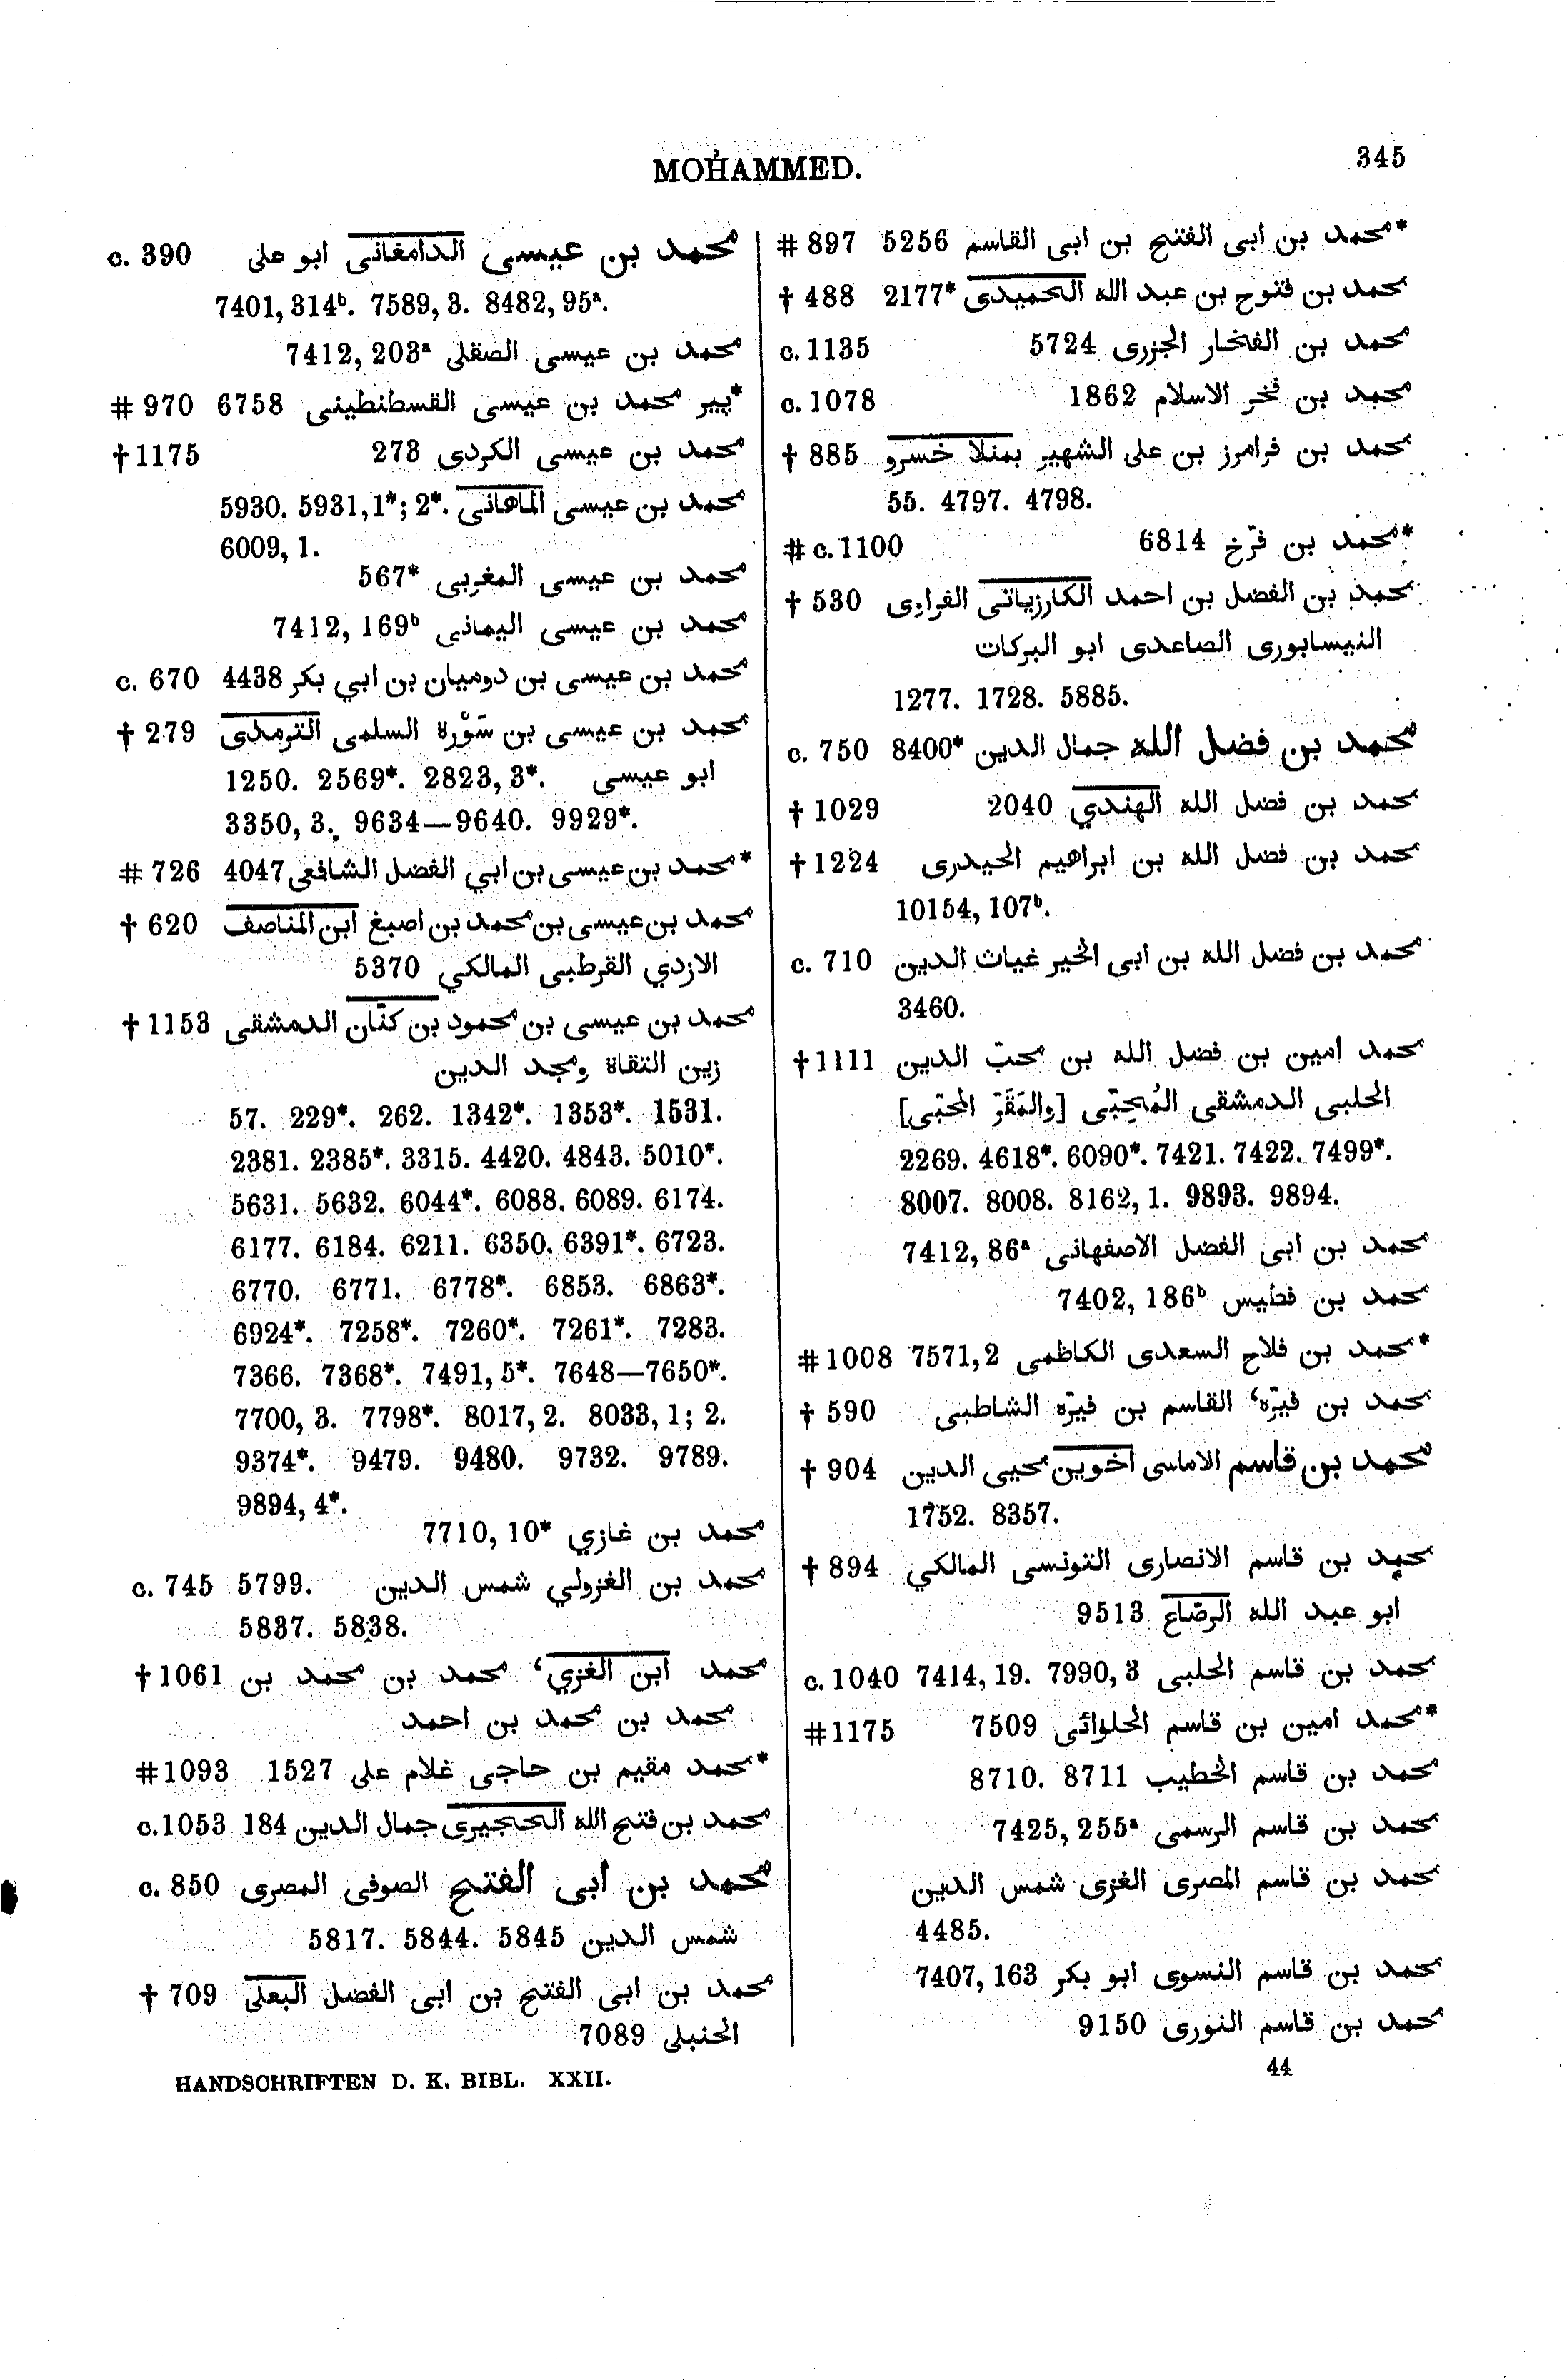 MOḢAMMED. 345
محمد بن عيسى الدامغانى ابو على c. 390
7401, 314ᵇ. 7589, 3. 8482, 95ᵃ.
محمد بن عيسى الصقلى 7412, 203ᵃ
*پير محمد بن عيسى القسطنطينى 6758 # 970
محمد بن عيسى الكردى 273 †1175
محمد بن عيسى الماهانى 5930. 5931,1*; 2*.
6009, 1.
محمد بن عيسى المغربى 567*
محمد بن عيسى اليمانى 7412, 169ᵇ
محمد بن عيسى بن دوميان بن ابي بكر 4438 c. 670
محمد بن عيسى بن سَوْرة السلمى الترمذى † 279
ابو عيسى 1250. 2569*. 2823, 3*.
3350, 3. 9634—9640. 9929*.
*محمد بن عيسى بن ابي الفضل الشافعى 4047 # 726
محمد بن عيسى بن محمد بن اصبغ ابن المناصف † 620
الازدي القرطبى المالكي 5370
محمد بن عيسى بن محمود بن كنّان الدمشقى † 1153
زين التقاة ومجد الدين
57. 229*. 262. 1342*. 1353*. 1531.
2381. 2385*. 3315. 4420. 4843. 5010*.
5631. 5632. 6044*. 6088. 6089. 6174.
6177. 6184. 6211. 6350. 6391*. 6723.
6770. 6771. 6778*. 6853. 6863*.
6924*. 7258*. 7260*. 7261*. 7283.
7366. 7368*. 7491, 5*. 7648—7650*.
7700, 3. 7798*. 8017, 2. 8033, 1; 2.
9374*. 9479. 9480. 9732. 9789.
9894, 4*.
محمد بن غازي 7710, 10*
محمد بن الغزولي شمس الدين 5799. c. 745
5837. 5838.
محمد ابن الغزي، محمد بن محمد بن † 1061
محمد بن محمد بن احمد
*محمد مقيم بن حاجى غلام على 1527 #1093
محمد بن فتح الله الحجيرى جمال الدين 184 c.1053
محمد بن ابى الفتح الصوفى المصرى c. 850
شمس الدين 5817. 5844. 5845
محمد بن ابى الفتح بن ابى الفضل البعلى † 709
الحنبلى 7089
*محمد بن ابى الفتح بن ابى القاسم 5256 # 897
محمد بن فتوح بن عبد الله الحميدى 2177* † 488
محمد بن الفخار الجزرى 5724 c. 1135
محمد بن فخر الاسلام 1862 c. 1078
محمد بن فرامرز بن على الشهير بمنلا خسرو † 885
55. 4797. 4798.
*محمد بن فرّخ 6814 # c. 1100
محمد بن الفضل بن احمد الكارزياتى الفراوى † 530
النيسابورى الصاعدى ابو البركات
1277. 1728. 5885.
محمد بن فضل الله جمال الدين 8400* c. 750
محمد بن فضل الله الهندي 2040 † 1029
محمد بن فضل الله بن ابراهيم الحيدرى † 1224
10154, 107ᵇ.
محمد بن فضل الله بن ابى الخير غياث الدين c. 710
3460.
محمد امين بن فضل الله بن محبّ الدين † 1111
الحلبى الدمشقى المُحِبّى [والمَقَرّ المحبّى]
2269. 4618*. 6090*. 7421. 7422. 7499*.
8007. 8008. 8162, 1. 9893. 9894.
محمد بن ابى الفضل الاصفهانى 7412, 86ᵃ
محمد بن فطيس 7402, 186ᵇ
*محمد بن فلاح السعدى الكاظمى 7571,2 #1008
محمد بن فيرّه، القاسم بن فيرّه الشاطبى † 590
محمد بن قاسم الاماسى اخوين محيى الدين † 904
1752. 8357.
محمد بن قاسم الانصارى التونسى المالكي † 894
ابو عبد الله الرصّاع 9513
محمد بن قاسم الحلبى 7414, 19. 7990, 3 c. 1040
*محمد امين بن قاسم الحلوائى 7509 #1175
محمد بن قاسم الخطيب 8710. 8711
محمد بن قاسم الرسمى 7425, 255ᵃ
محمد بن قاسم المصرى الغزى شمس الدين
4485.
محمد بن قاسم النسوى ابو بكر 7407, 163
محمد بن قاسم النورى 9150
HANDSCHRIFTEN D. K. BIBL. XXII. 44